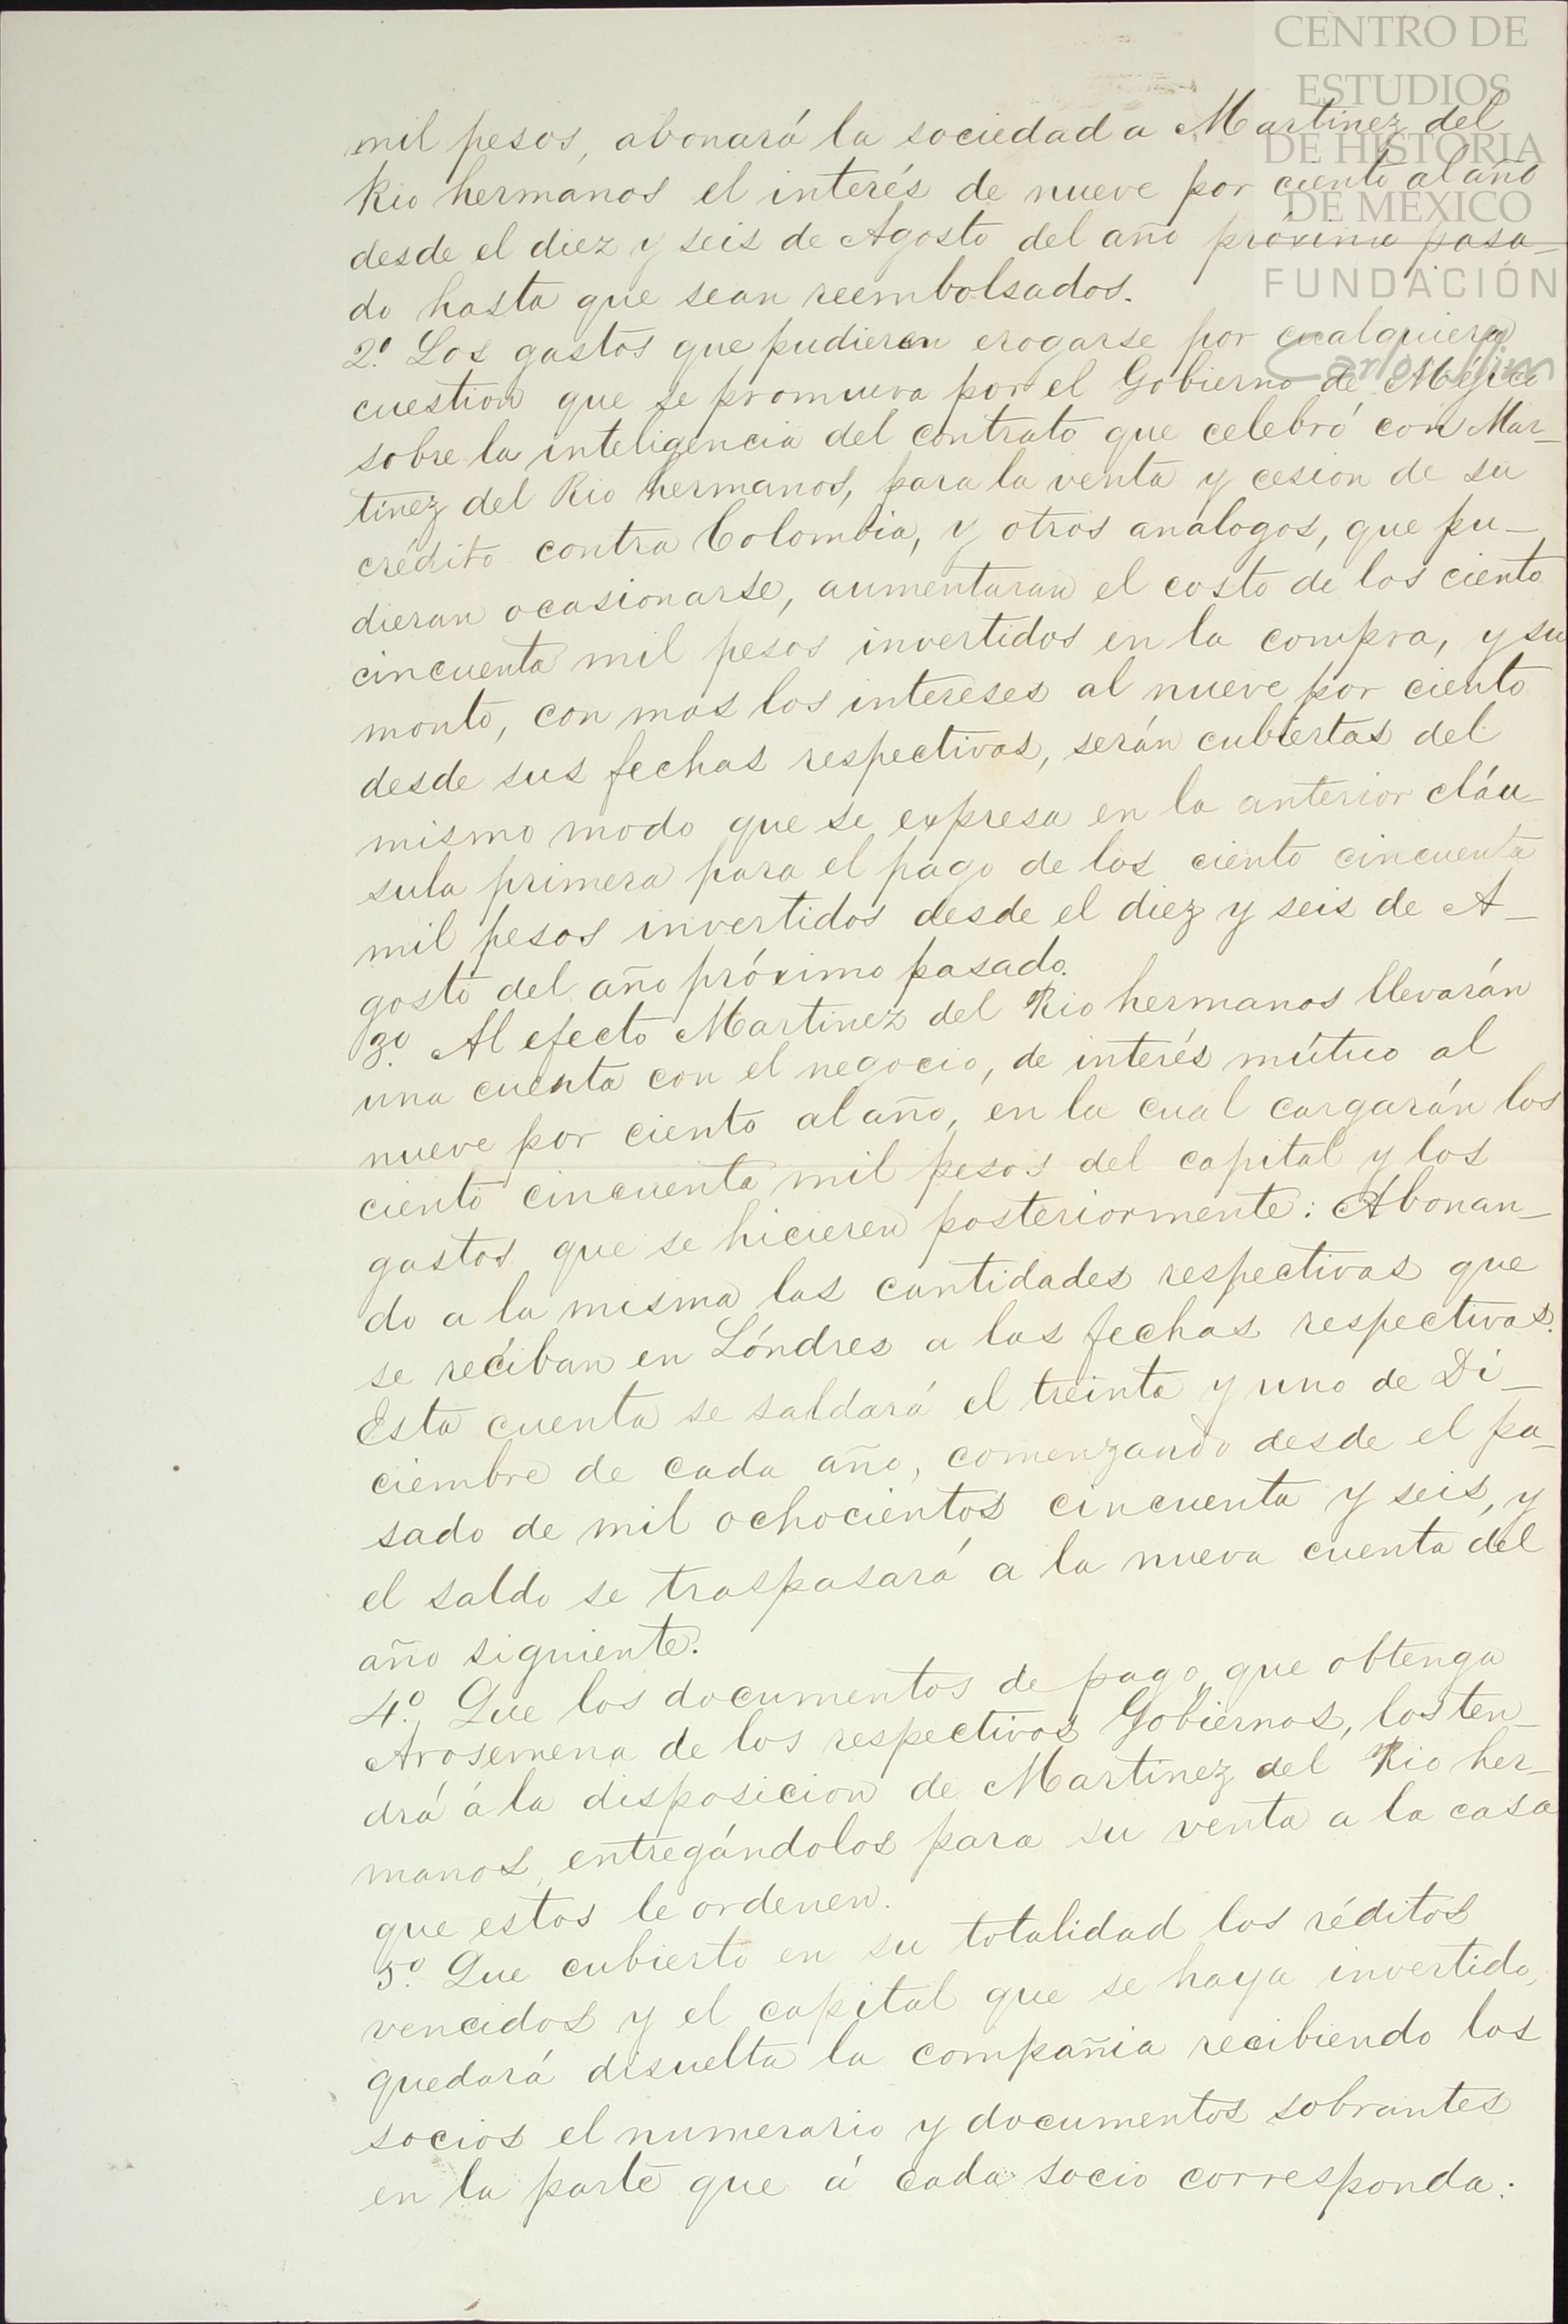 CENTRO DE
ESTUDIOS
DE HISTORIA
DE MÉXICO
FUNDACIÓN
Carlos Slim
mil pesos, abonará la sociedad a Martinez del
Rio hermanos el interés de nueve por ciento al año
desde el diez y seis de Agosto del año próximo pasa-
do hasta que sean reembolsados.
2º. Los gastos que pudieren erogarse por cualquiera
cuestion que se promueva por el Gobierno de Méjico
sobre la inteligencia del contrato que celebró con Mar-
tinez del Rio hermanos, para la venta y cesion de su
crédito contra Colombia, y otros análogos, que pu-
dieran ocasionarse, aumentaran el costo de los ciento
cincuenta mil pesos invertidos en la compra, y su
monto, con mas los intereses al nueve por ciento
desde sus fechas respectivas, serán cubiertas del
mismo modo que se expresa en la anterior cláu-
sula primera para el pago de los ciento cincuenta
mil pesos invertidos desde el diez y seis de A-
gosto del año próximo pasado.
3º. Al efecto Martinez del Rio hermanos llevarán
una cuenta con el negocio, de interés mútuo al
nueve por ciento al año, en la cual cargarán los
ciento cincuenta mil pesos del capital y los
gastos que se hicieren posteriormente: Abonan-
do a la misma las cantidades respectivas que
se reciban en Lóndres a las fechas respectivas.
Esta cuenta se saldará el treinta y uno de Di-
ciembre de cada año, comenzando desde el pa-
sado de mil ochocientos cincuenta y seis, y
el saldo se traspasará a la nueva cuenta del
año siguiente.
4º. Que los documentos de pago que obtenga
Arosemena de los respectivos Gobiernos, los ten-
drá á la disposicion de Martinez del Rio her-
manos, entregándolos para su venta a la casa
que estos le ordenen.
5º. Que cubierto en su totalidad los réditos
vencidos y el capital que se haya invertido,
quedará disuelta la compañia recibiendo los
socios el numerario y documentos sobrantes
en la parte que á cada socio corresponda: